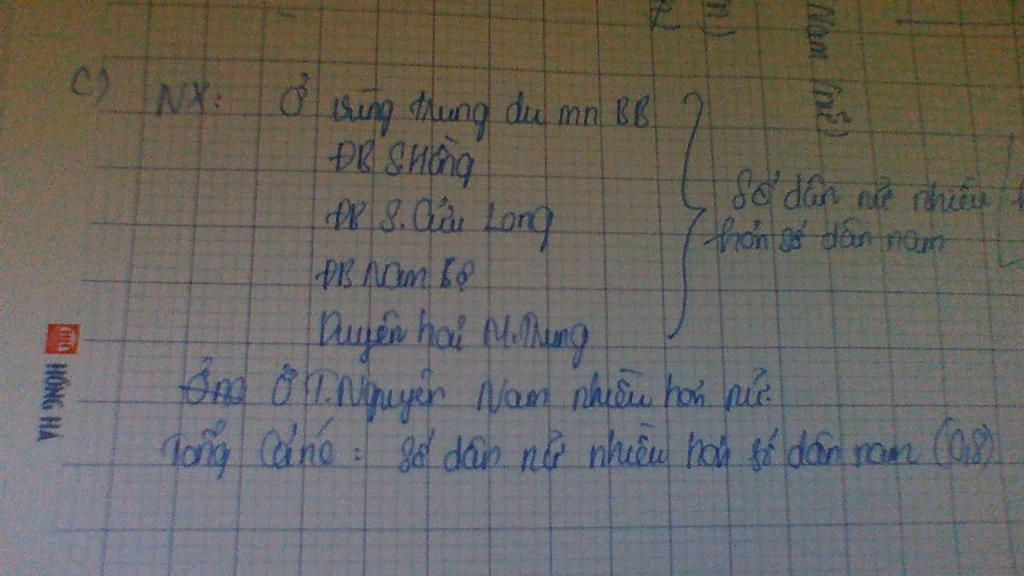 C) NX: Ở vùng trung du mn BB
ĐB S.Hồng
ĐB S. Cửu Long
ĐB Nam Bộ
Duyên hải M.Trung
Số dân nữ nhiều
hơn số dân nam
Ở T.Nguyên Nam nhiều hơn nữ.
Tổng cả nc: Số dân nữ nhiều hơn số dân nam (0,8)
HỒNG HÀ
Nam